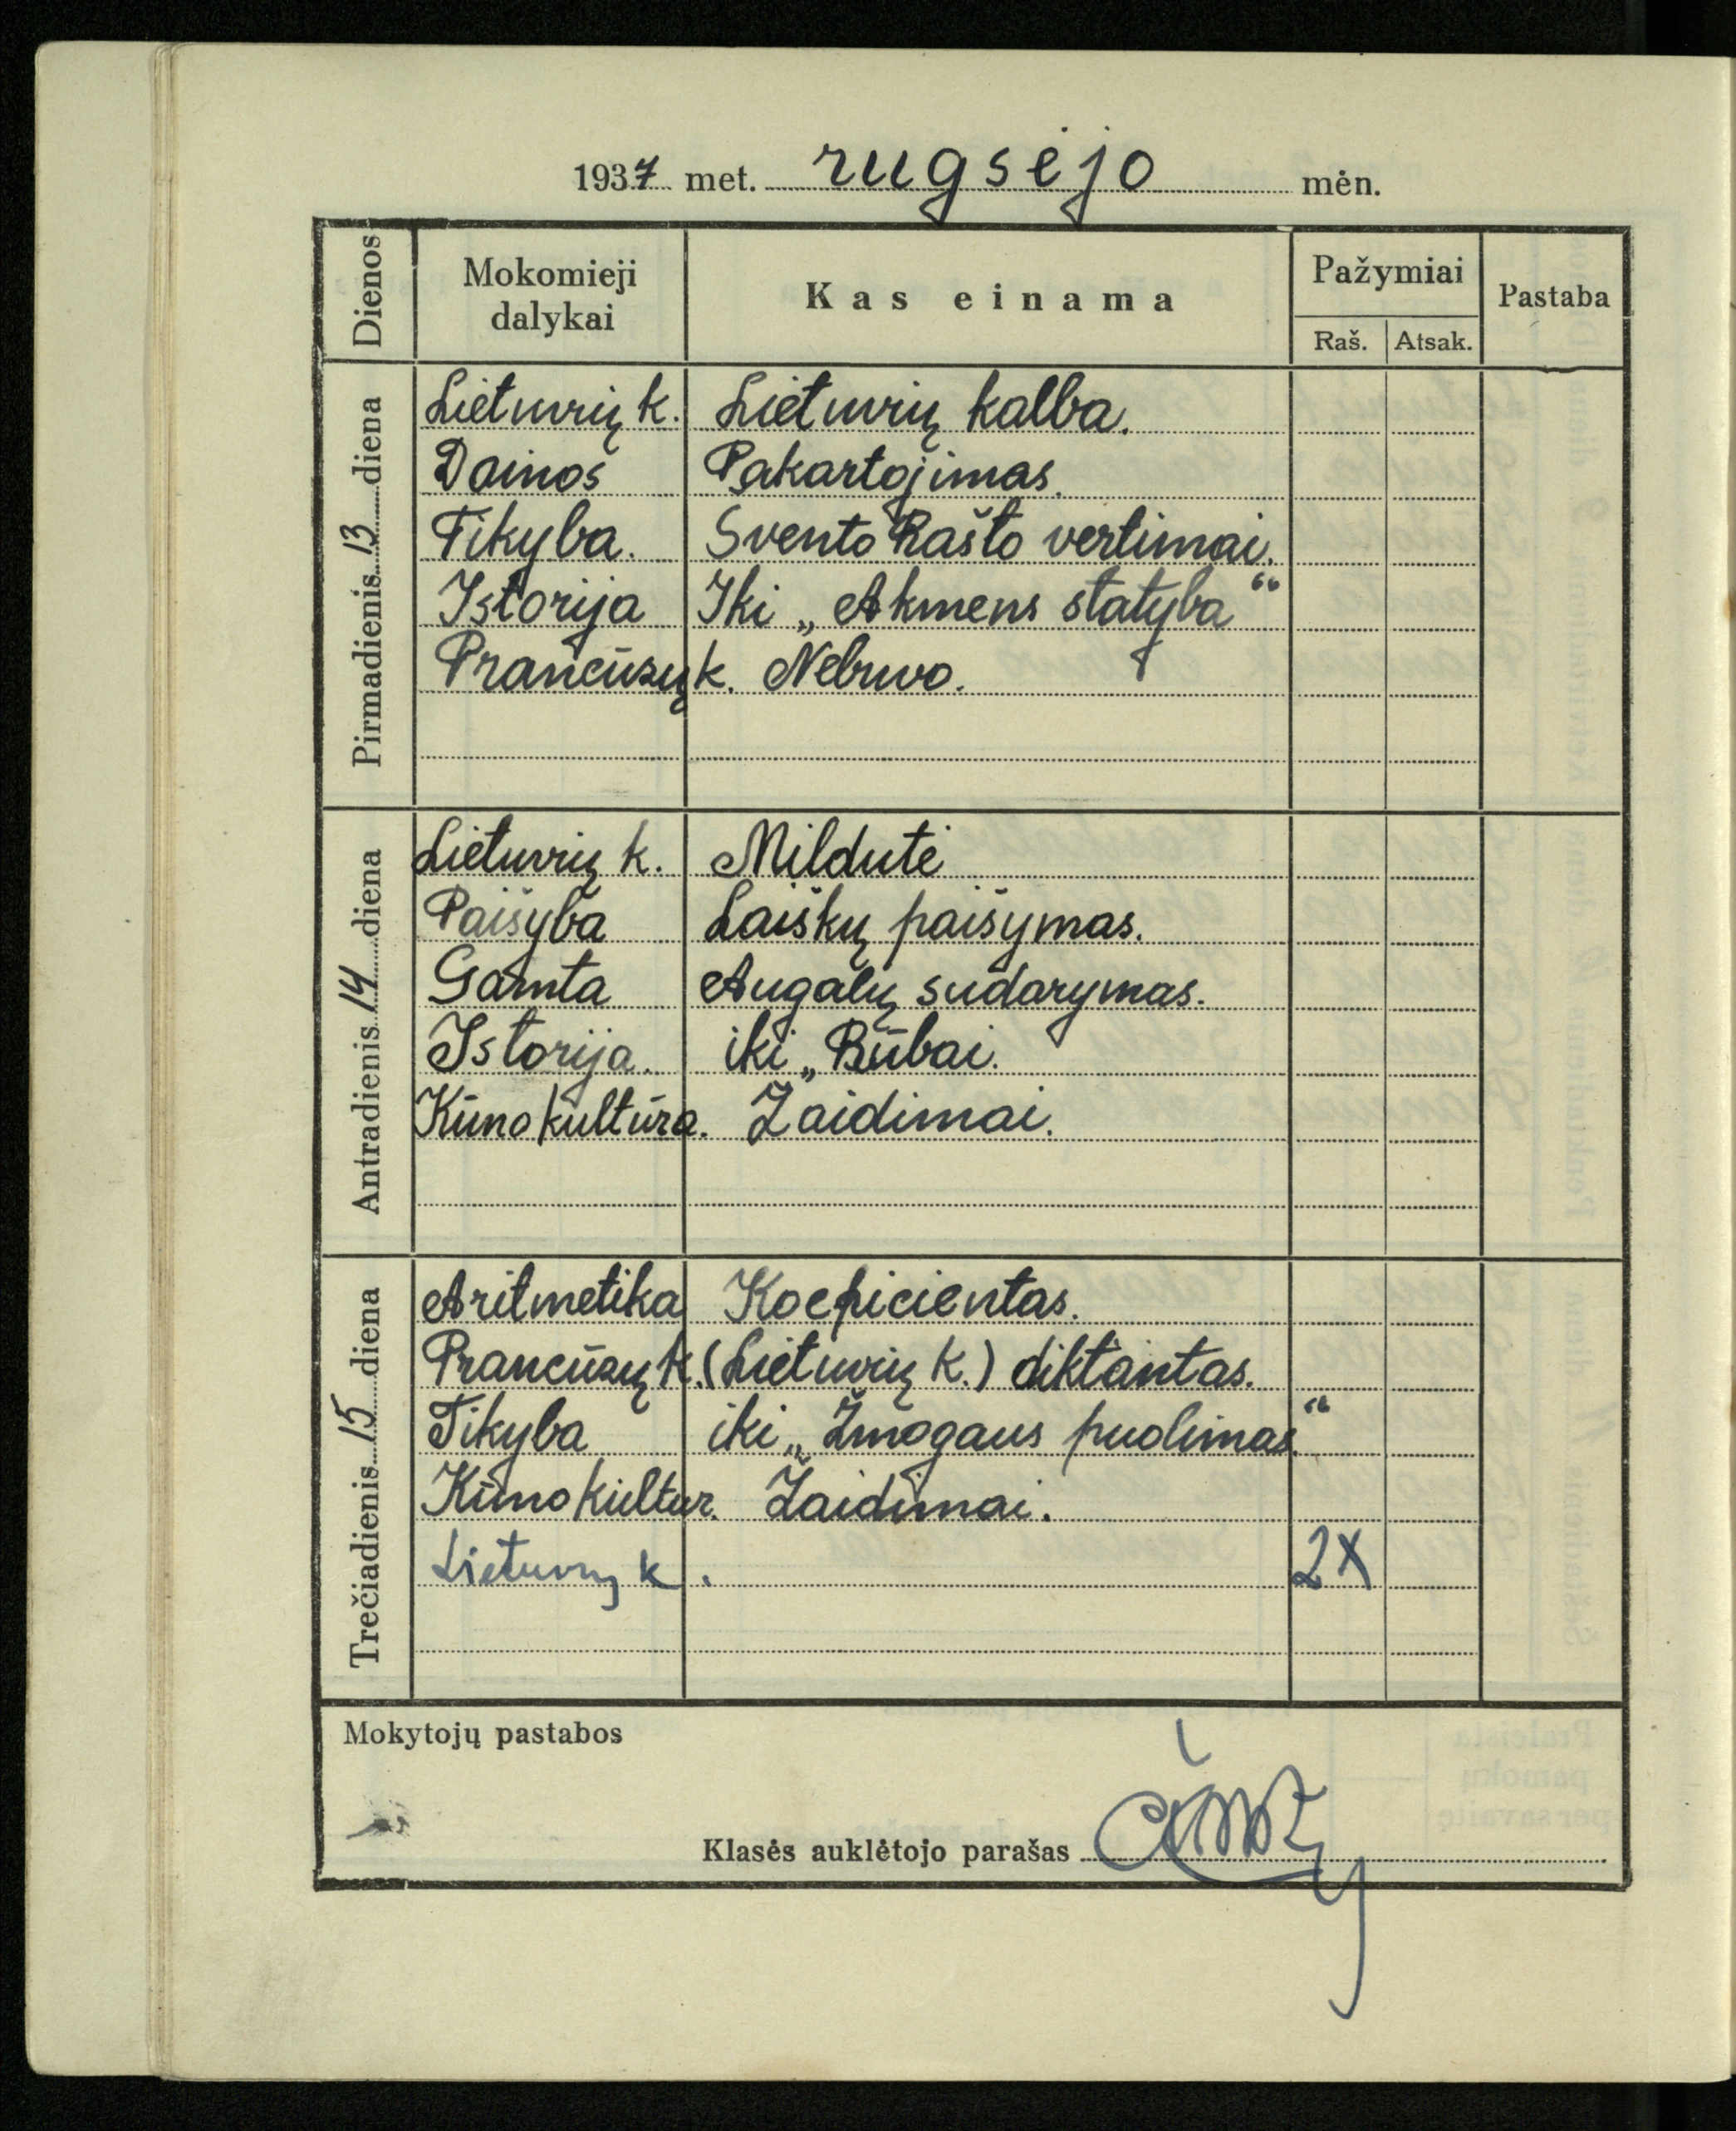 1937 met. rugsėjo mėn.
Dienos Mokomieji dalykai Kas einama Pažymiai Pastaba
Raš. Atsak.
Pirmadienis 13 diena
Lietuvių k. Lietuvių kalba.
Dainos Pakartojimas.
Tikyba. Švento Rašto vertimai.
Istorija Iki „Akmens statyba“
Prancūzų k. Nebuvo.
Antradienis 14 diena
Lietuvių k. Mildutė
Paišyba Laiškų paišymas.
Gamta Augalų sudarymas.
Istorija. iki „Būbai.
Kūno kultūra. Žaidimai.
Trečiadienis 15 diena
Aritmetika Koeficientas.
Prancūzų k. (Lietuvių k.) diktantas.
Tikyba iki „Žmogaus puolimas.“
Kūno kultur. Žaidimai.
Lietuvių k. 2X
Mokytojų pastabos
Klasės auklėtojo parašas